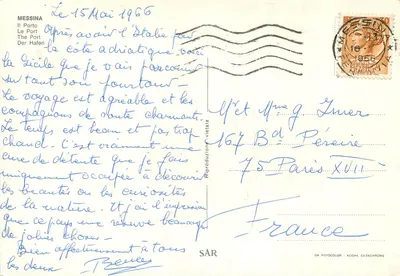 MESSINA
Il Porto
Le Port
The Port
Der Hafen
Le 15 Mai 1966
Après avoir l'Italie par
la côte adriatique voici
la Sicile que je vais parcourir
sur tout son pourtour.
Le voyage est agréable et les
compagnons de route charmants.
Le temps est beau et pas trop
chaud. C'est vraiment une
cure de détente que je fais
uniquement occupée à découvrir
les beautés ou les curiosités
de la nature. Et j'ai l'impression
que ce pays me réserve beaucoup
de jolies choses.
Bien affectueusement à tous
les deux.
MESSINA
1966
Mr et Mme G.
167 Bd Péreire
75 Paris XVII
France
SAR